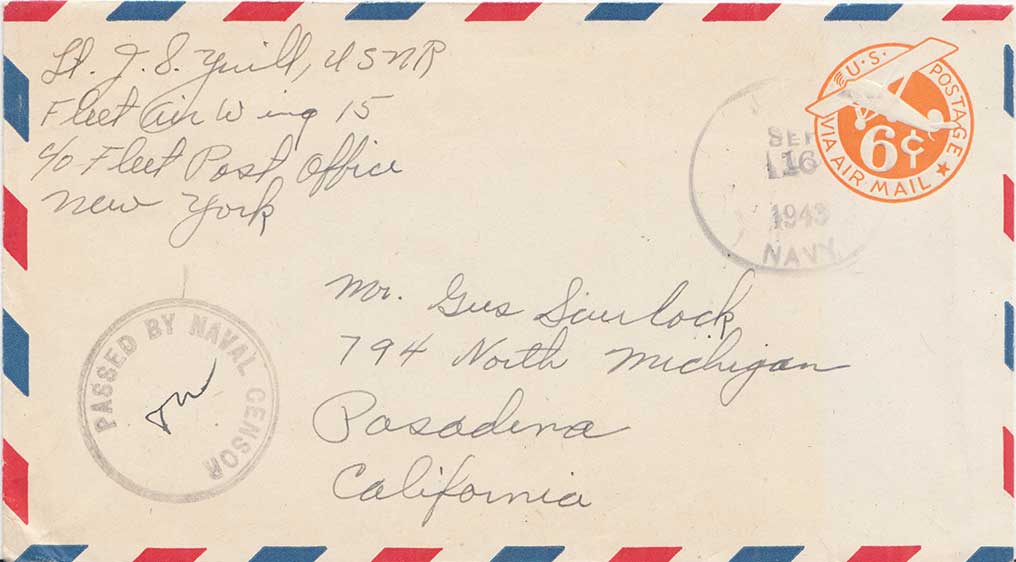 Lt. J. S. Yuill, USNR
Fleet Air Wing 15
c/o Fleet Post Office
New York
SEP
16
1943
NAVY
U.S. POSTAGE
6¢
VIA AIR MAIL
Mr. Gus Scurlock
794 North Michigan
Pasadena
California
PASSED BY NAVAL CENSOR